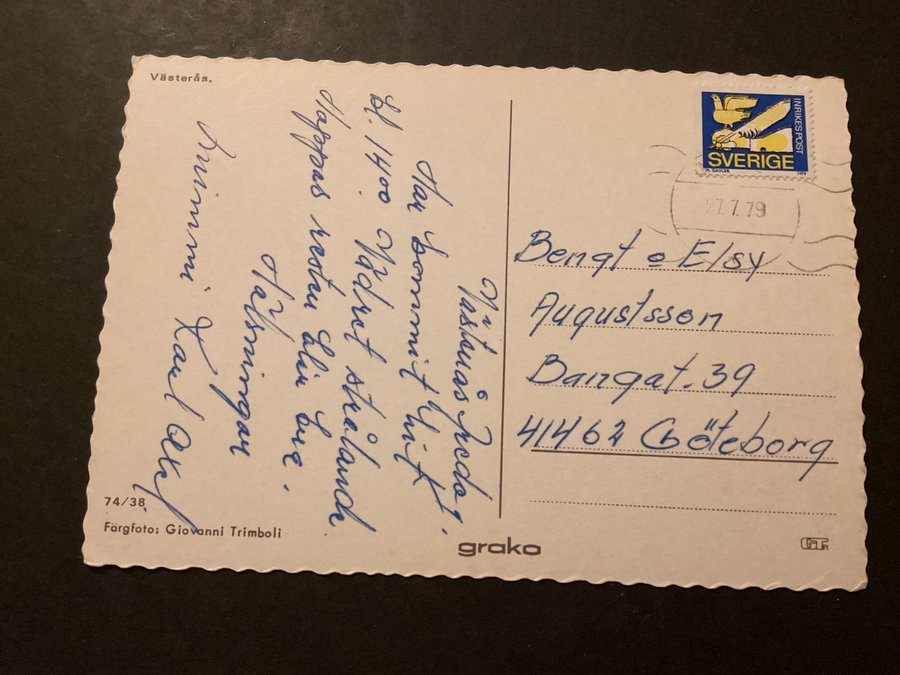 Västerås.
Västerås fredag.
Har kommit hit
kl. 1400 Vädret strålande.
Hoppas resten blir bra.
Hälsningar
Karl Axel
74/38
Färgfoto: Giovanni Trimboli
grako
INRIKES POST
SVERIGE
27.7.79
Bengt o Elsy
Augustsson
Bangat. 39
41462 Göteborg